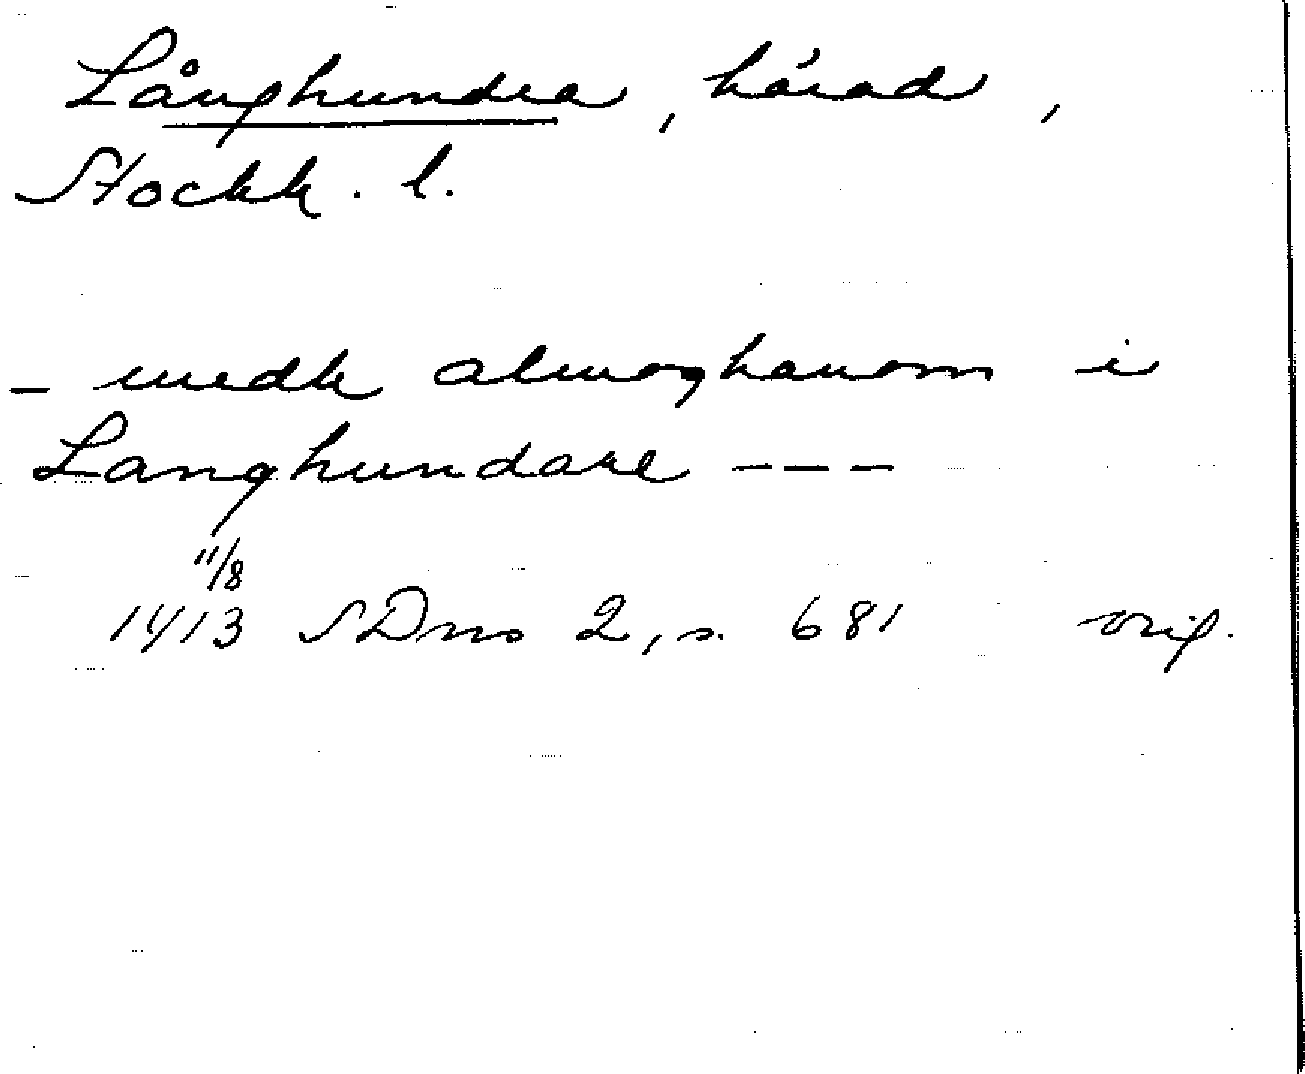 Långhundra, härad,
Stockh. l.
- medh almoghanom i
Langhundare ---
11/8
1413 SDns 2, s. 681 orig.